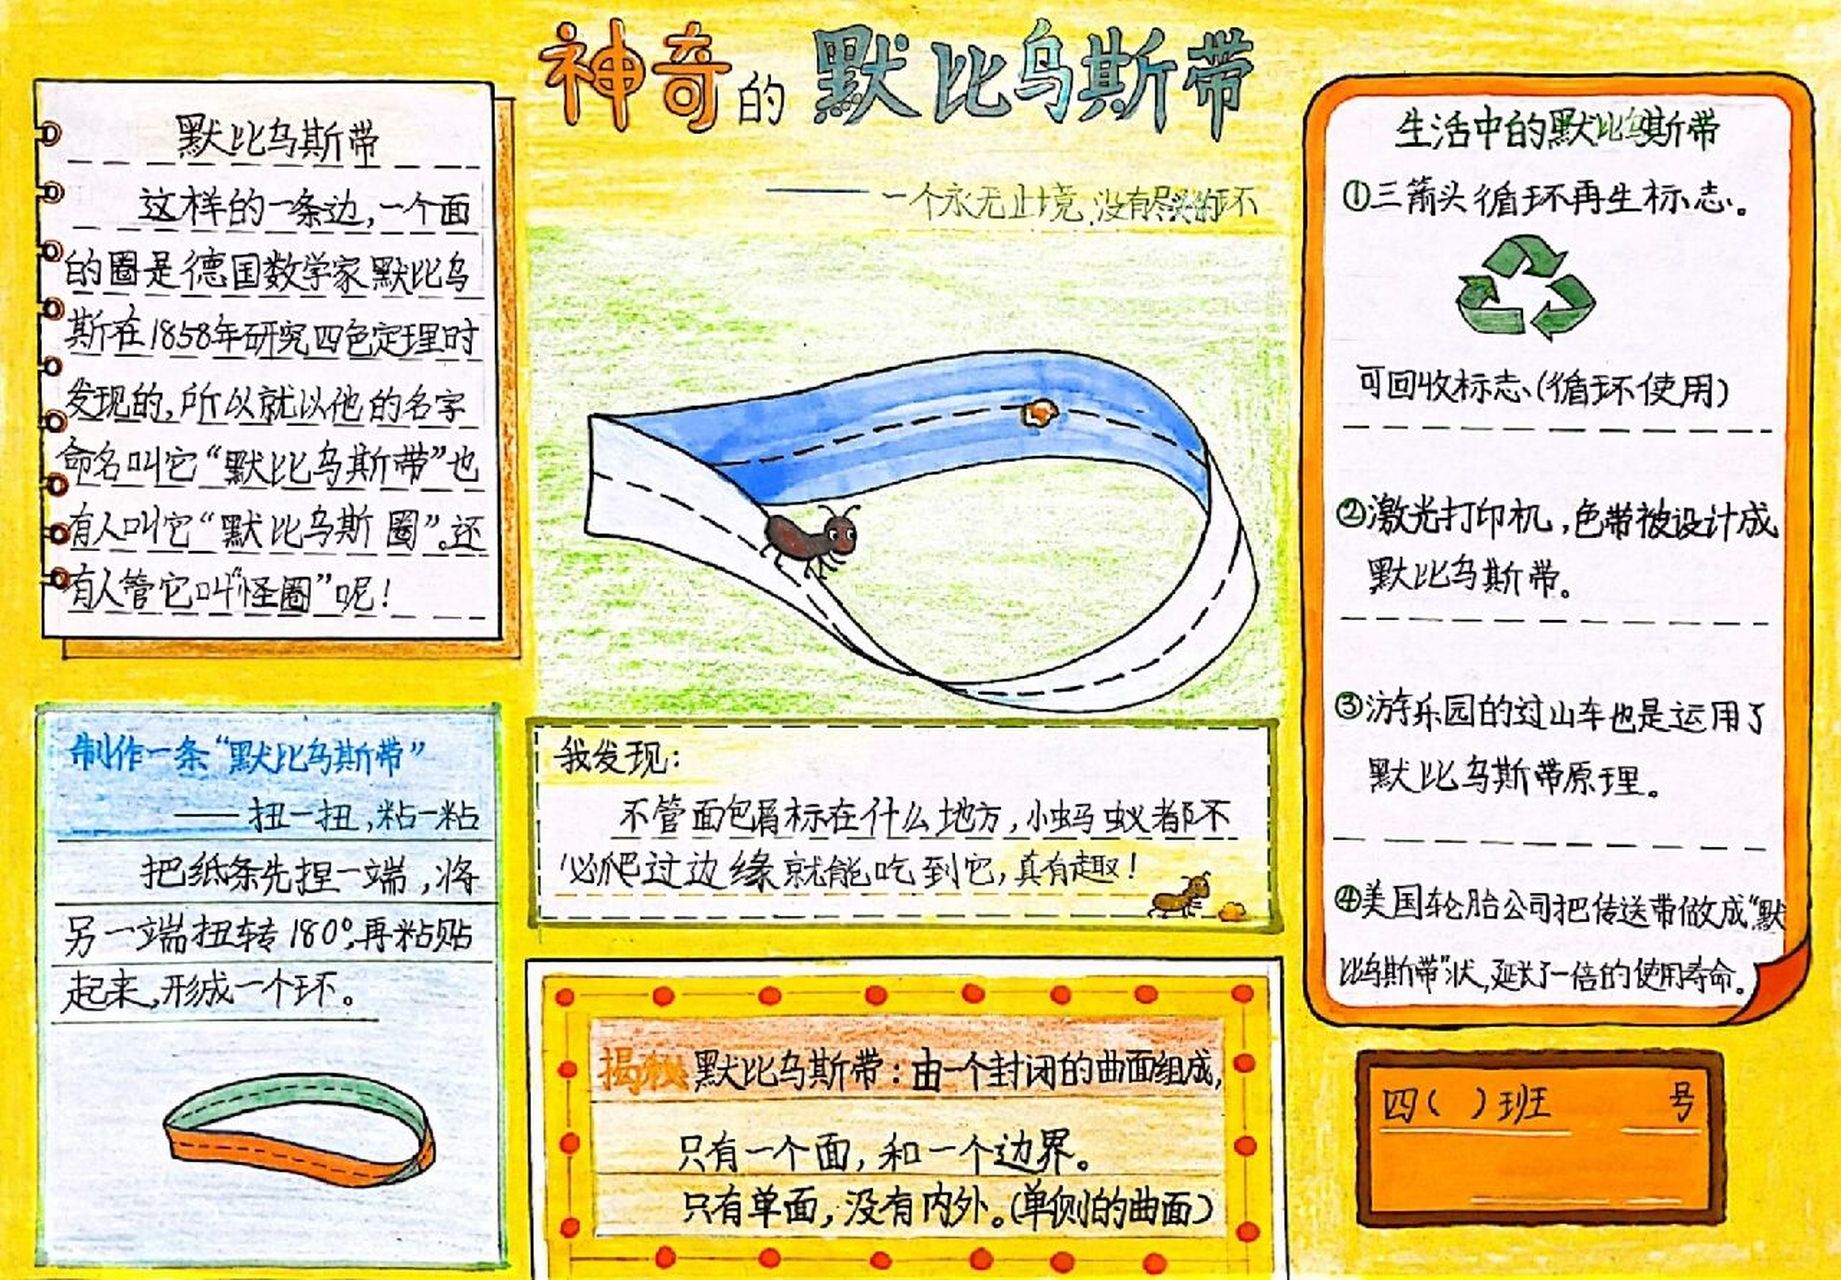 神奇的默比乌斯带
——一个永无止境,没有尽头的环
默比乌斯带
这样的一条边,一个面
的圈是德国数学家默比乌
斯在1858年研究四色定理时
发现的,所以就以他的名字
命名叫它“默比乌斯带”也
有人叫它“默比乌斯圈”。还
有人管它叫“怪圈”呢!
制作一条“默比乌斯带”
——扭一扭,粘一粘
把纸条先捏一端,将
另一端扭转180°,再粘贴
起来,形成一个环。
我发现:
不管面包屑标在什么地方,小蚂蚁都不
必爬过边缘就能吃到它,真有趣!
揭秘默比乌斯带:由一个封闭的曲面组成,
只有一个面,和一个边界。
只有单面,没有内外。(单侧的曲面)
生活中的默比乌斯带
①三箭头循环再生标志。
可回收标志(循环使用)
②激光打印机,色带被设计成
默比乌斯带。
③游乐园的过山车也是运用了
默比乌斯带原理。
④美国轮胎公司把传送带做成“默
比乌斯带”状,延长了一倍的使用寿命。
四( )班 号